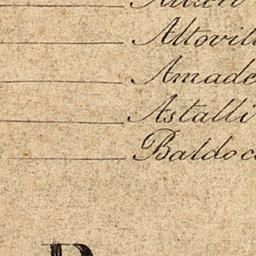 Altovit
Amade
Astalli
Baldoc